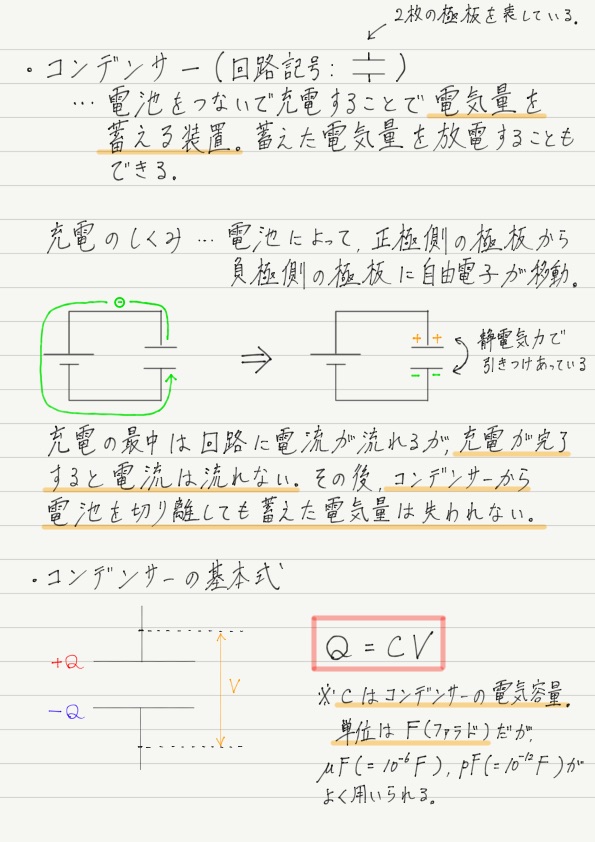 2枚の極板を表している。
・コンデンサー(回路記号: )
…電池をつないで充電することで電気量を
蓄える装置。蓄えた電気量を放電することも
できる。
充電のしくみ…電池によって,正極側の極板から
負極側の極板に自由電子が移動。
⊖
⇒
+ +
− −
静電気力で
引きつけあっている
充電の最中は回路に電流が流れるが,充電が完了
すると電流は流れない。その後,コンデンサーから
電池を切り離しても蓄えた電気量は失われない。
・コンデンサーの基本式
+Q
−Q
V
Q = CV
※Cはコンデンサーの電気容量。
単位はF(ファラド)だが,
μF(=10⁻⁶F),pF(=10⁻¹²F)が
よく用いられる。